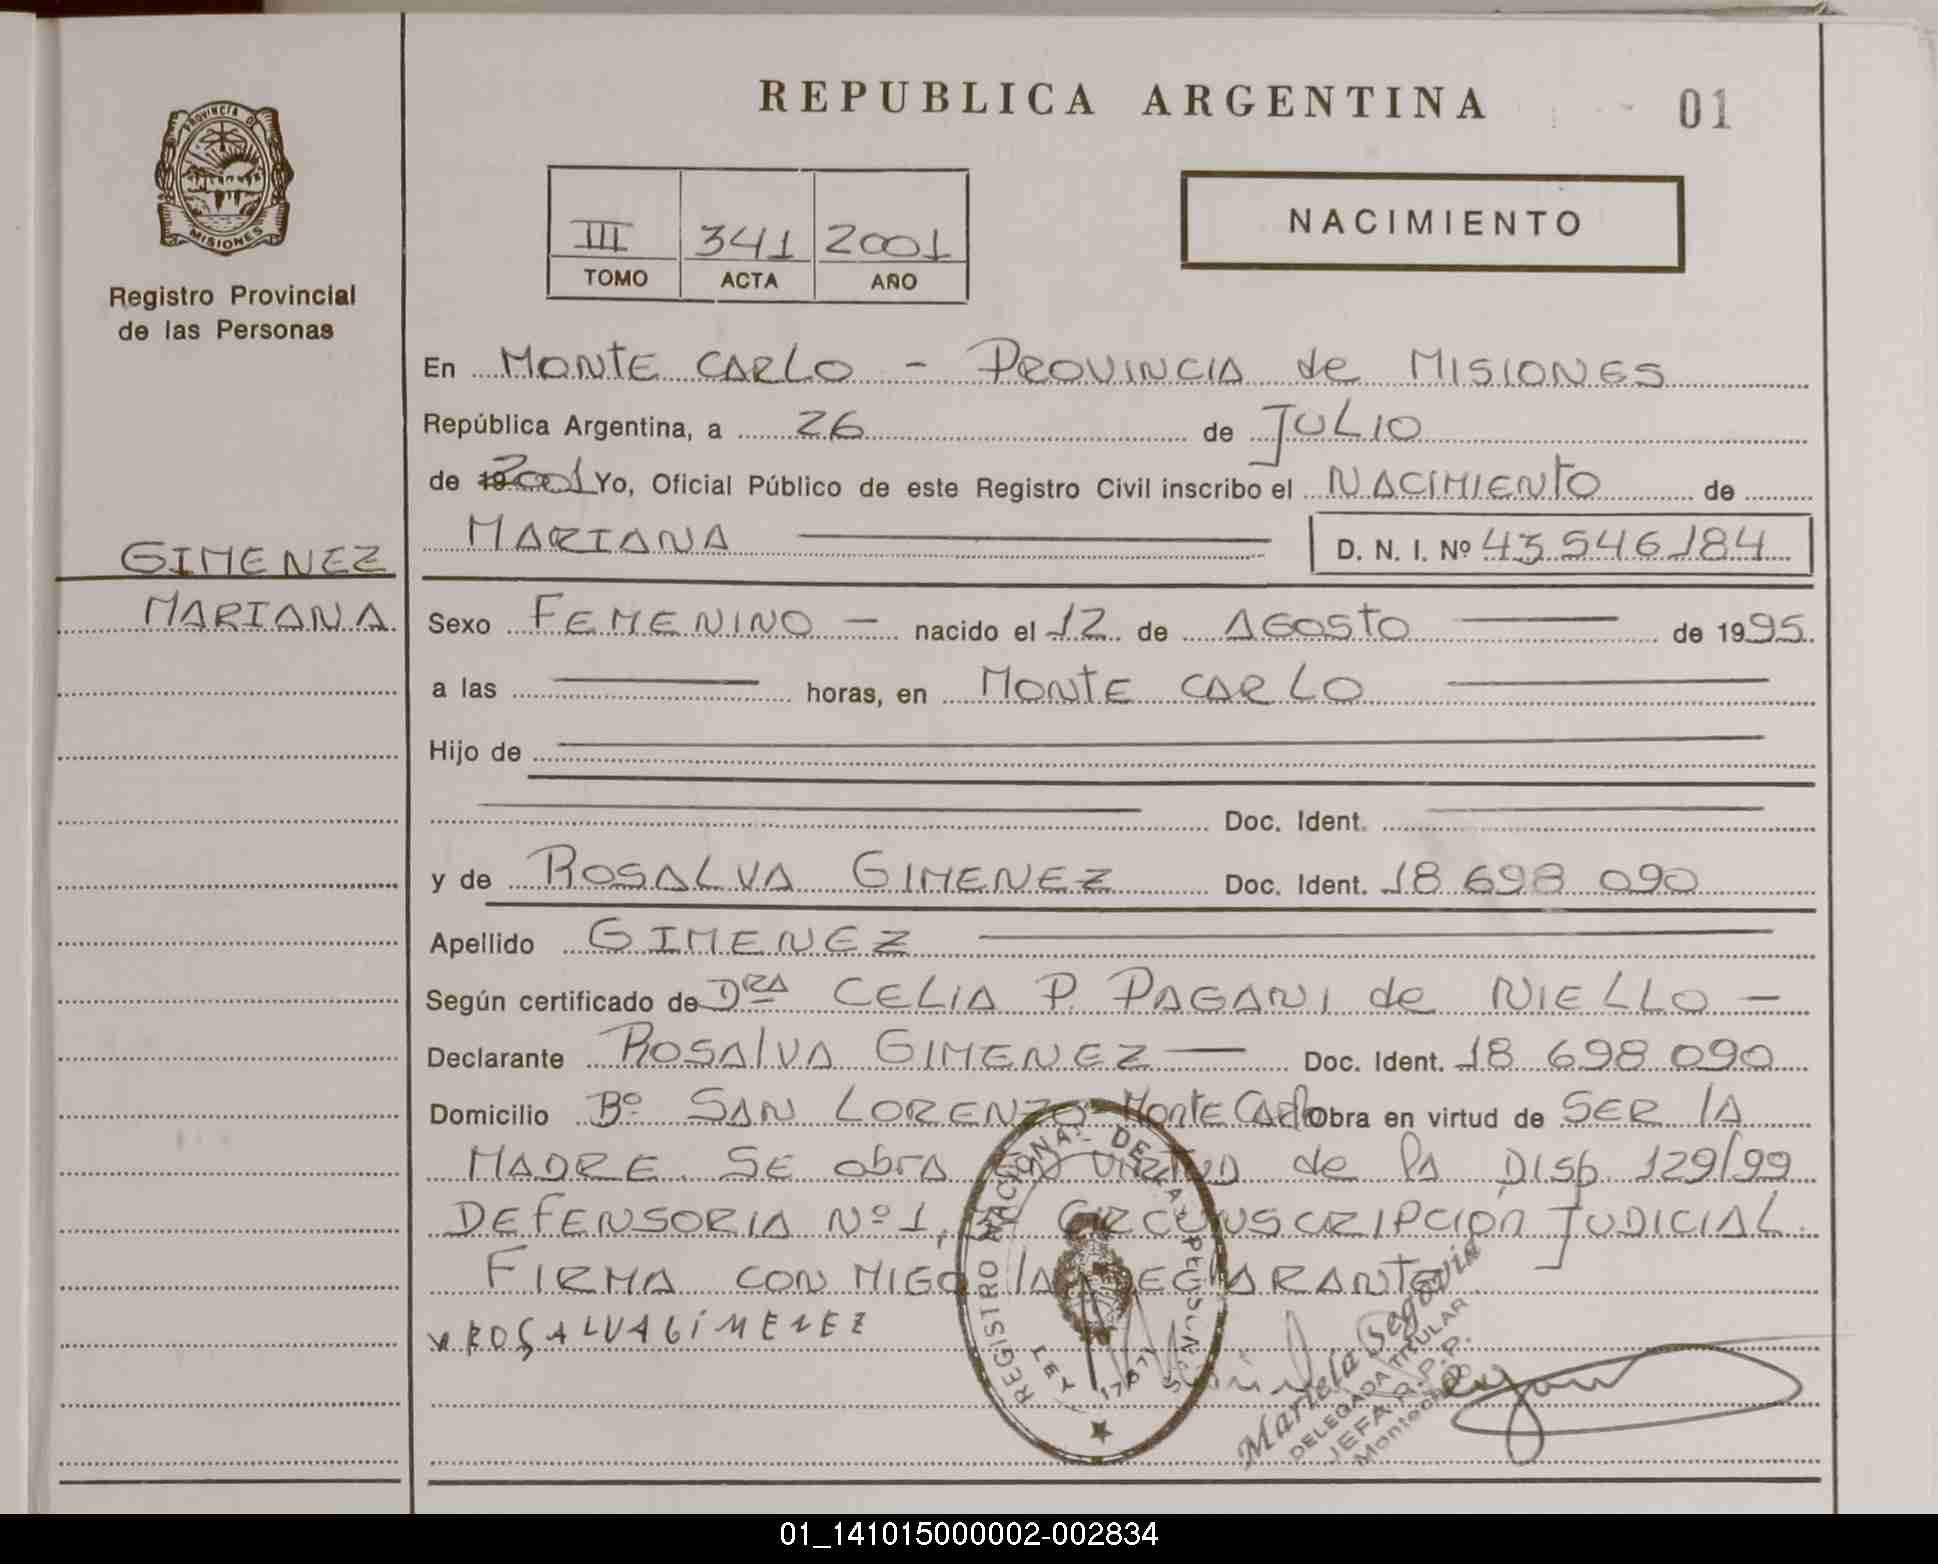 PROVINCIA DE
MISIONES
Registro Provincial
de las Personas
GIMENEZ
MARIANA
REPUBLICA ARGENTINA
01
III 341 2001
TOMO ACTA AÑO
NACIMIENTO
En MONTE CARLO - PROVINCIA de MISIONES
República Argentina, a 26 de JULIO
de 19 2001 Yo, Oficial Público de este Registro Civil inscribo el NACIMIENTO de
MARIANA D. N. I. Nº 43 546 184
Sexo FEMENINO — nacido el 12 de AGOSTO de 1995
a las horas, en MONTE CARLO
Hijo de
Doc. Ident.
y de ROSALVA GIMENEZ Doc. Ident. 18 698 090
Apellido GIMENEZ
Según certificado de DRA CELIA P. PAGANI de NIELLO —
Declarante ROSALVA GIMENEZ — Doc. Ident. 18 698 090
Domicilio Bº SAN LORENZO - Monte Carlo Obra en virtud de SER LA
MADRE. SE obRA VIRTUD de LA DISP. 129/99
DEFENSORIA Nº 1, CIRCUNSCRIPCIÓN JUDICIAL.
FIRMA CONMIGO LA DECLARANTE
ROSALVA GIMENEZ
REGISTRO NACIONAL DE LAS PERSONAS
LEY 17671
Mariela Segovia
DELEGADA TITULAR
JEFA R.P.P.
Montecarlo
01_141015000002-002834